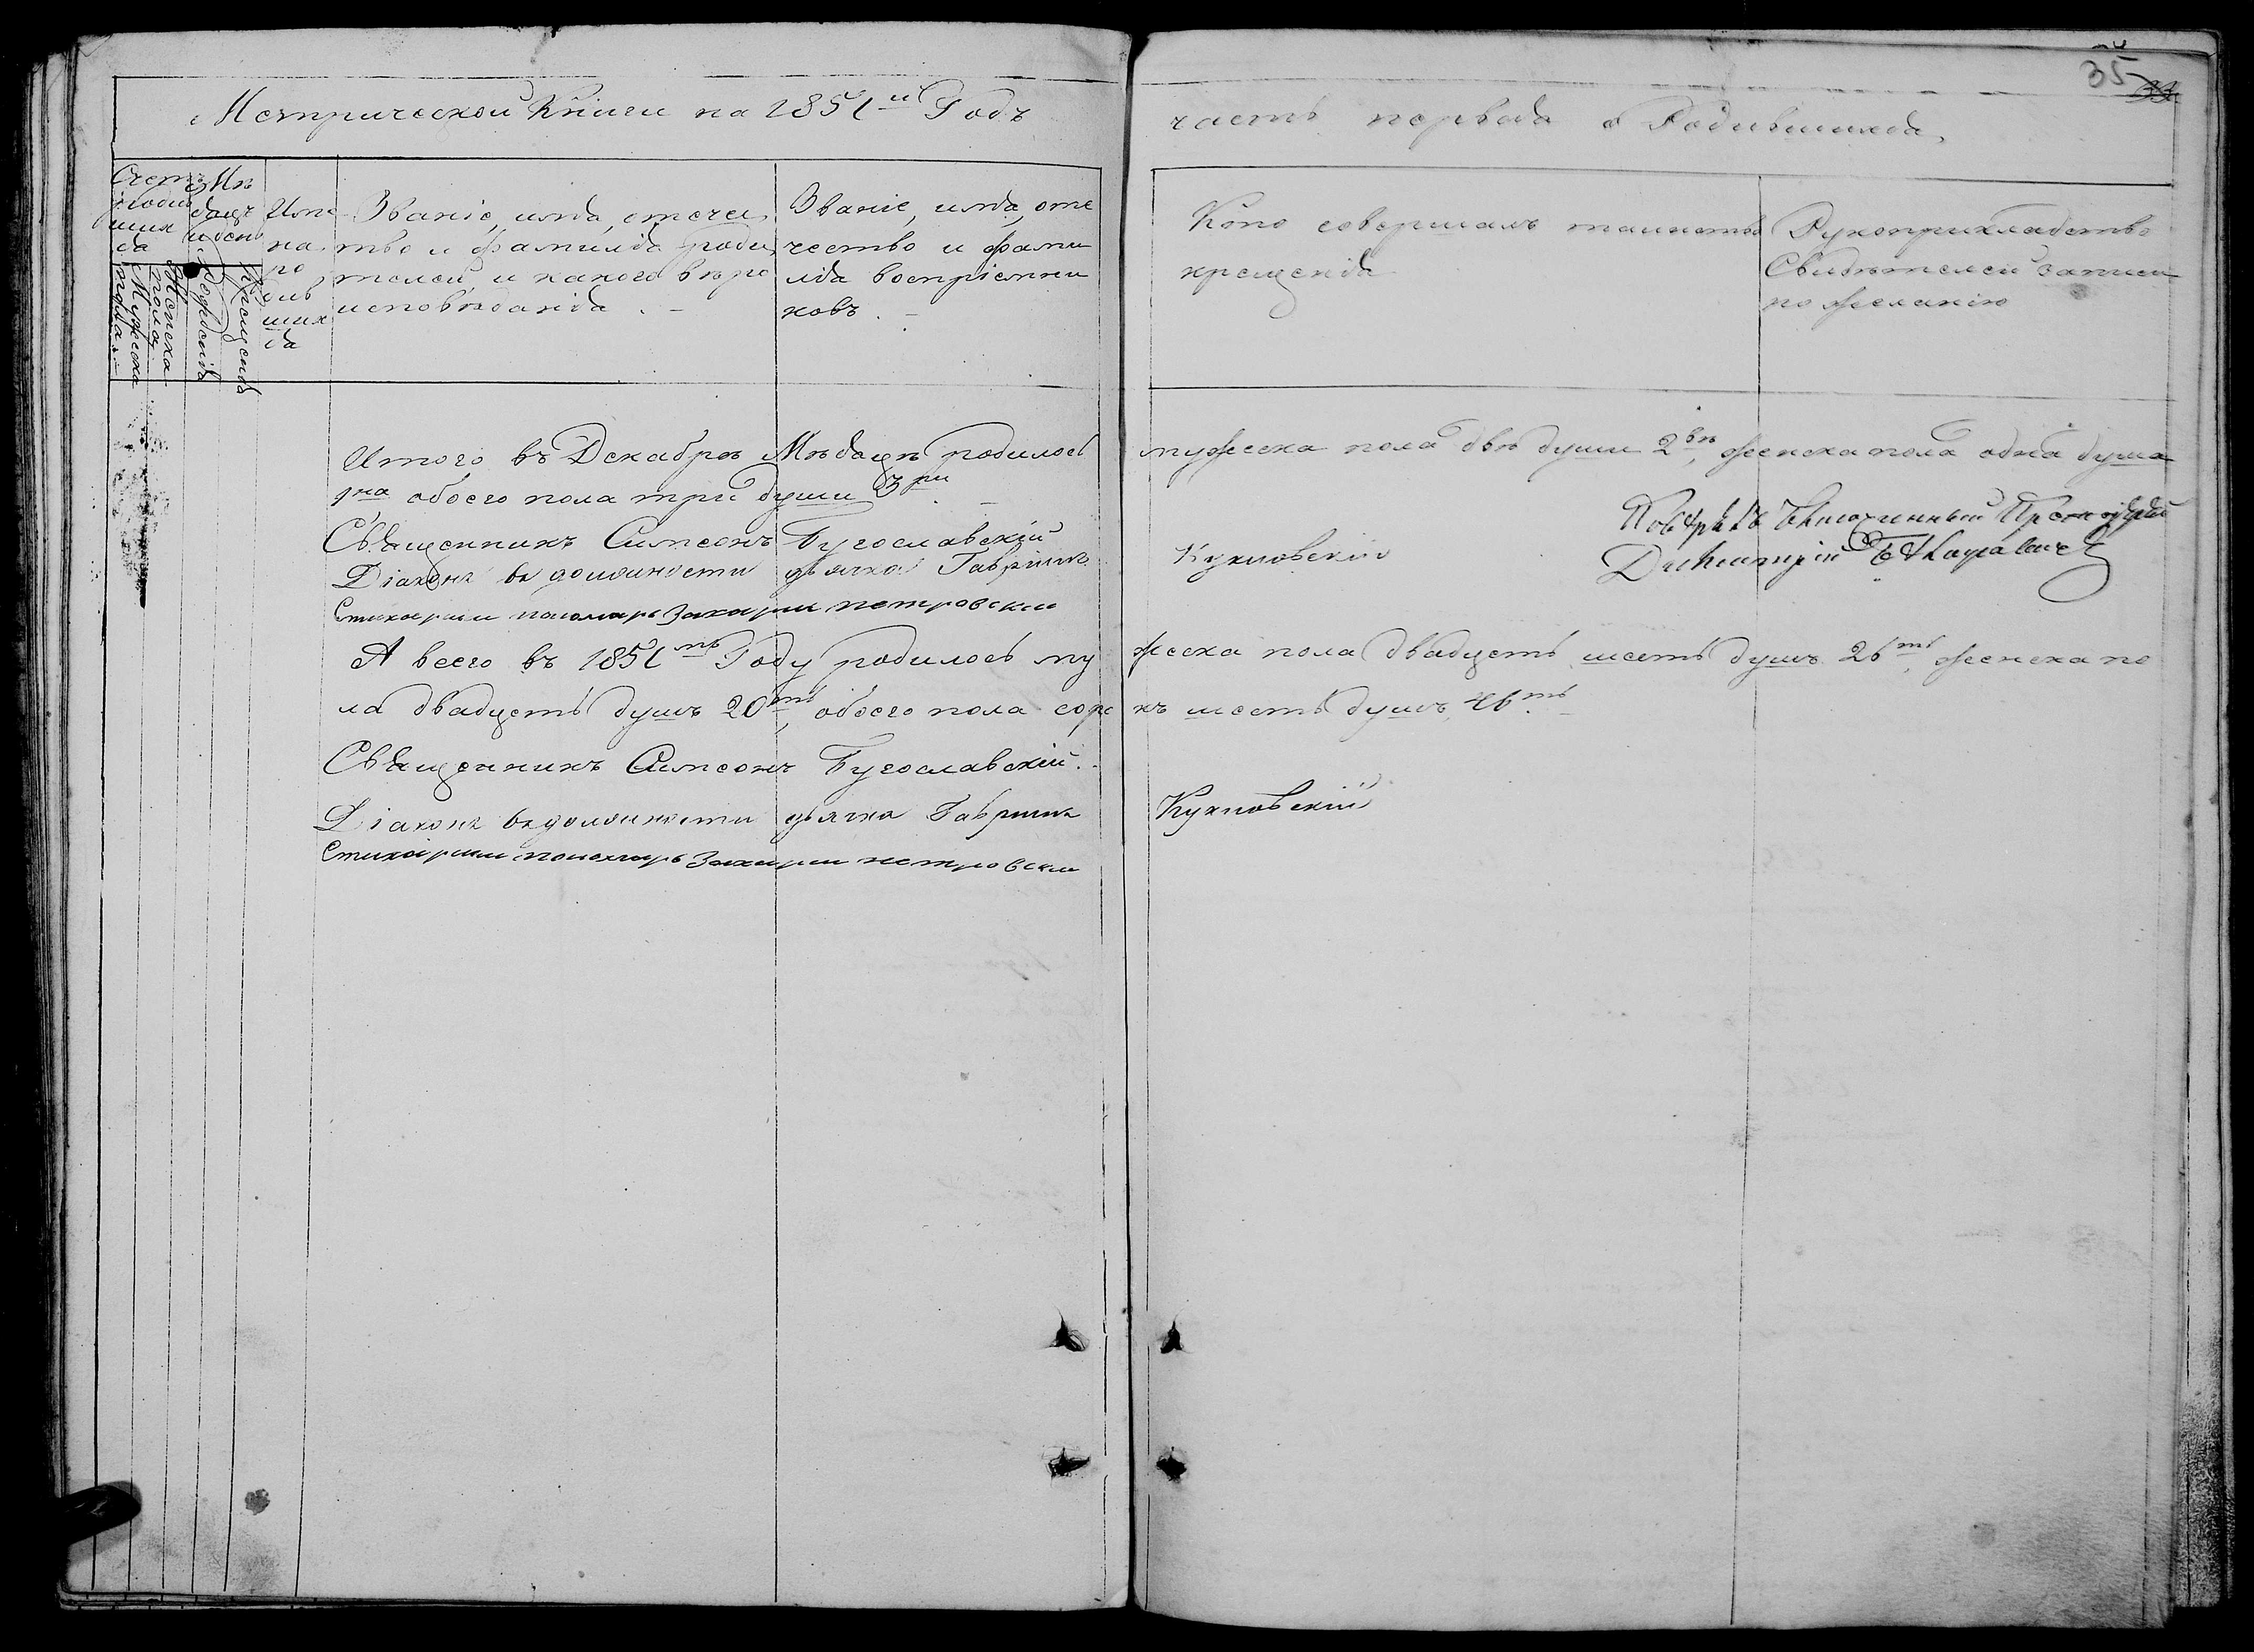 Метрической Книги на 1851й Годъ
часть первая о Родившихся
35
Счетъ родив шихся
Мужеска пола
Женска пола
Мѣ сяцъ и день
Рожденія
Крещенія
Име на ро див ших ся
Званіе, имя, отече
ство и фамилія роди
телей, и какого вѣро
исповѣданія.
Званіе, имя, оте
чество и фами
лія воспріемни
ковъ.
Кто совершалъ таинство
крещенія
Рукоприкладство
Свидѣтелей записи
по желанію
Итого въ Декабрѣ Мѣсяцѣ родилось мужеска пола двѣ души 2вѣ, женска пола одна душа
1на обоего пола три души 3ри
Священникъ Симеонъ Бугославскій
Діаконъ въ должности дьячка Гавріилъ Кухновскій
Стихарный пономарь Захарий петровский
Димитрій
А всего въ 1851мъ Году родилось му жеска пола двадцеть шесть душъ 26ть, женска по
ла двадцеть душъ 20ть, обоего пола соро къ шесть душъ, 46ть.
Священникъ Симеонъ Бугославскій.
Діаконъ въ должности дьячка Гавріилъ Кухновскій
Стихарный пономарь Захарий петровский